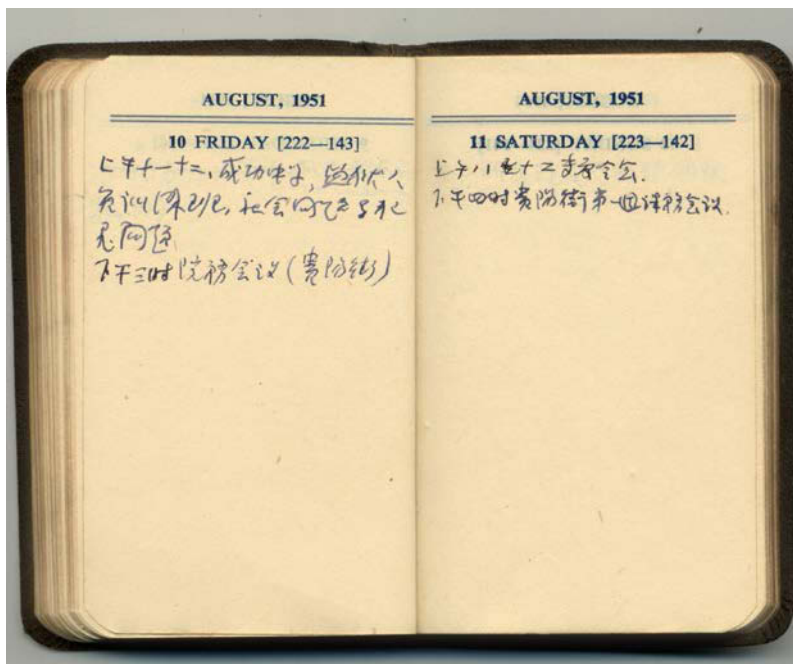 AUGUST, 1951
10 FRIDAY [222—143]
上午十一十二，成功中学，监狱人
员训练班，社会问题与犯
罪问题
下午三时院务会议（贵阳街）
AUGUST, 1951
11 SATURDAY [223—142]
上午八至十二
下午四时贵阳街第一组课务会议